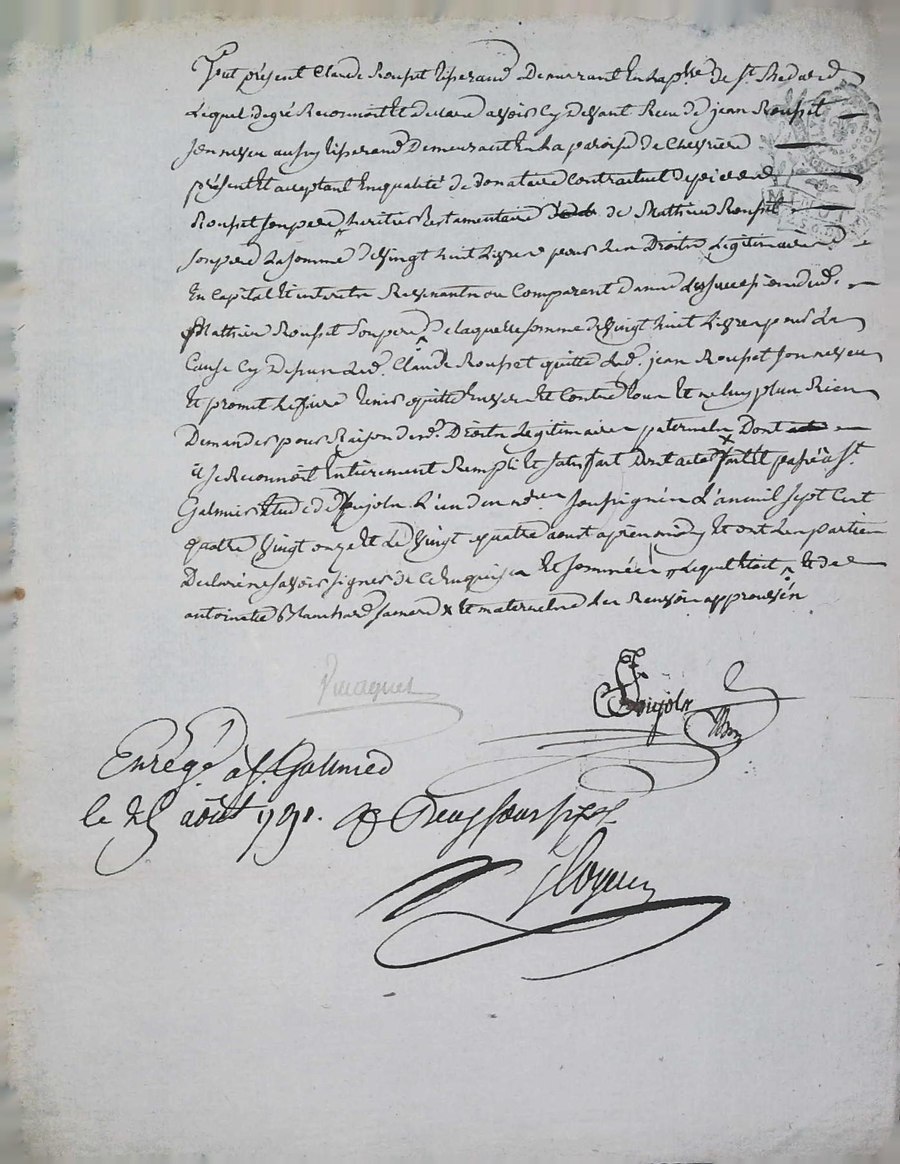 Fut présent Claude Rousset tisserand Demeurant En la psse de st. Medard
Lequel de gré Reconnoit Et declare avoir Cy devant Reçu de jean Rousset
son neveu aussy tisserand Demeurant En la paroisse de Chevrière
présent Et acceptant En qualité de donataire Contractuel de pierre
Rousset son pere heritier Testamentaire de Mathieu Rousset
son pere La somme de vingt huit Livres pour Les Droits Legitimaires
En Capital Et interets Revenants au Comparant dans la succession dud.
Mathieu Rousset son pere de laquelle somme de vingt huit Livres pour La
Cause Cy Dessus Led. Claude Rousset quitte Led. jean Rousset son neveu
Et promet Le faire tenir quitte Envers Et Contre tous Et ne luy plus Rien
Demander pour Raison desd. Droits Legitimaires paternels Dont
il se Reconnoit Entièrement Rempli Et satisfait Dont acte fait Et passé à st.
Galmier Etude de Poujols L'un des nores soussignés L'an mil sept Cent
quatre vingt onze Et Le vingt quatre aout après midy Et ont Les parties
Declaré ne savoir signer de Ce Enquises Et sommées Lequel Etoit Et de
antoinette Blanchard sa mere x Et maternels Les Renvois approuvés
Poujols
Enregé à st. Galmier
le 25 août 1791. Reçu